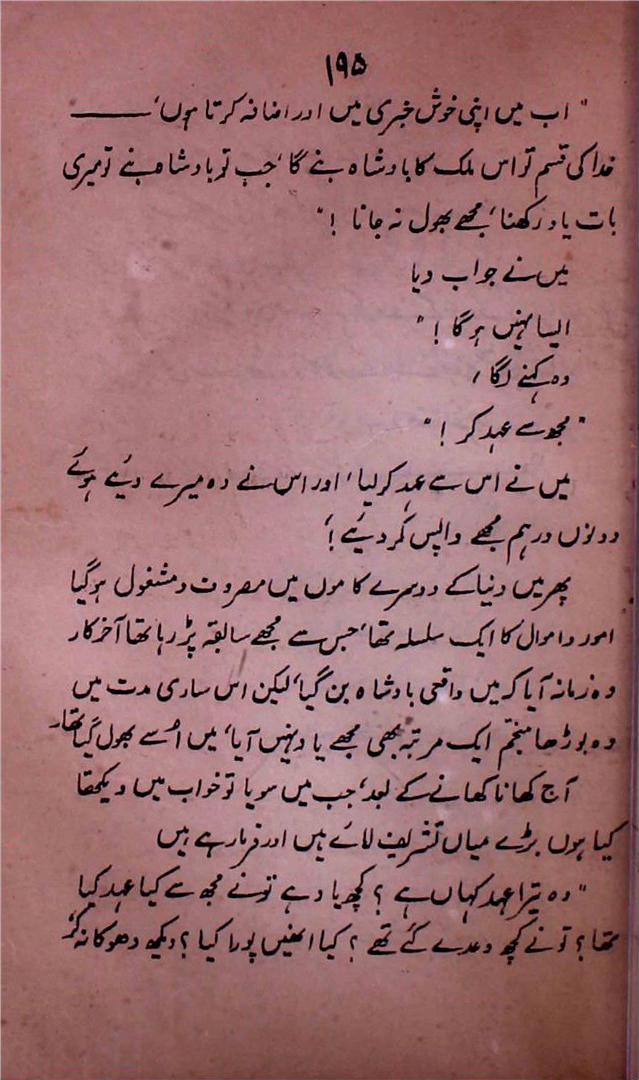 ۱۹۵
" اب میں اپنی خوش خبری میں اور اضافہ کرتا ہوں، ——
خدا کی قسم تو اس ملک کا بادشاہ بنے گا، جب تو بادشاہ بنے تو میری
بات یاد رکھنا، مجھے بھول نہ جانا !"
میں نے جواب دیا
ایسا نہیں ہو گا !"
وہ کہنے لگا،
" مجھ سے عہد کر !"
میں نے اس سے عہد کر لیا، اور اس نے وہ میرے دیئے ہوئے
دونوں درہم مجھے واپس کر دیئے !
پھر میں دنیا کے دوسرے کاموں میں مصروف و مشغول ہو گیا
امور و اموال کا ایک سلسلہ تھا، جس سے مجھے سابقہ پڑ رہا تھا آخر کار
وہ زمانہ آیا کہ میں واقعی بادشاہ بن گیا، لیکن اس ساری مدت میں
وہ بوڑھا منجم ایک مرتبہ بھی مجھے یاد نہیں آیا، میں اُسے بھول گیا تھا۔
آج کھانا کھانے کے بعد، جب میں سویا تو خواب میں دیکھتا
کیا ہوں بڑے میاں تشریف لائے ہیں اور فرما رہے ہیں
" وہ تیرا عہد کہاں ہے ؟ کچھ یاد ہے تو نے مجھ سے کیا عہد کیا
تھا ؟ تو نے کچھ وعدے کئے تھے ؟ کیا انھیں پورا کیا ؟ دیکھ دھوکا نہ کر